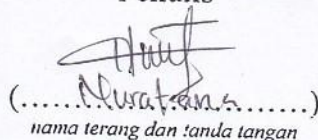 Penulis
(......Nuratiana.......)
nama terang dan tanda tangan